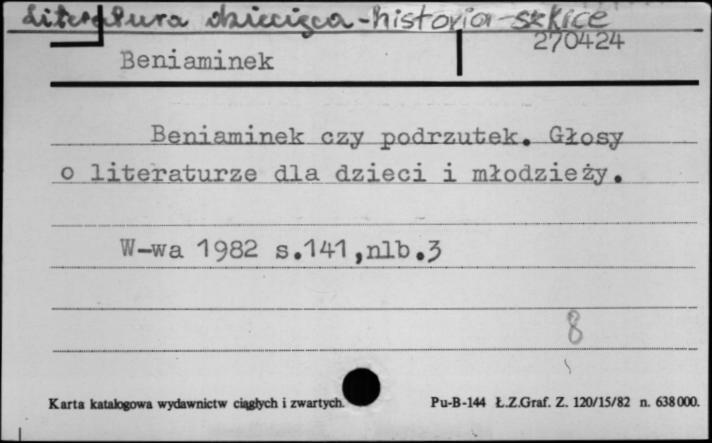 Literatura dziecięca - historia - szkice
270424
Beniaminek
Beniaminek czy podrzutek. Głosy
o literaturze dla dzieci i młodzieży.
W-wa 1982 s.141,nlb.3
8
Karta katalogowa wydawnictw ciągłych i zwartych. Pu-B-144 Ł.Z.Graf. Z. 120/15/82 n. 638000.